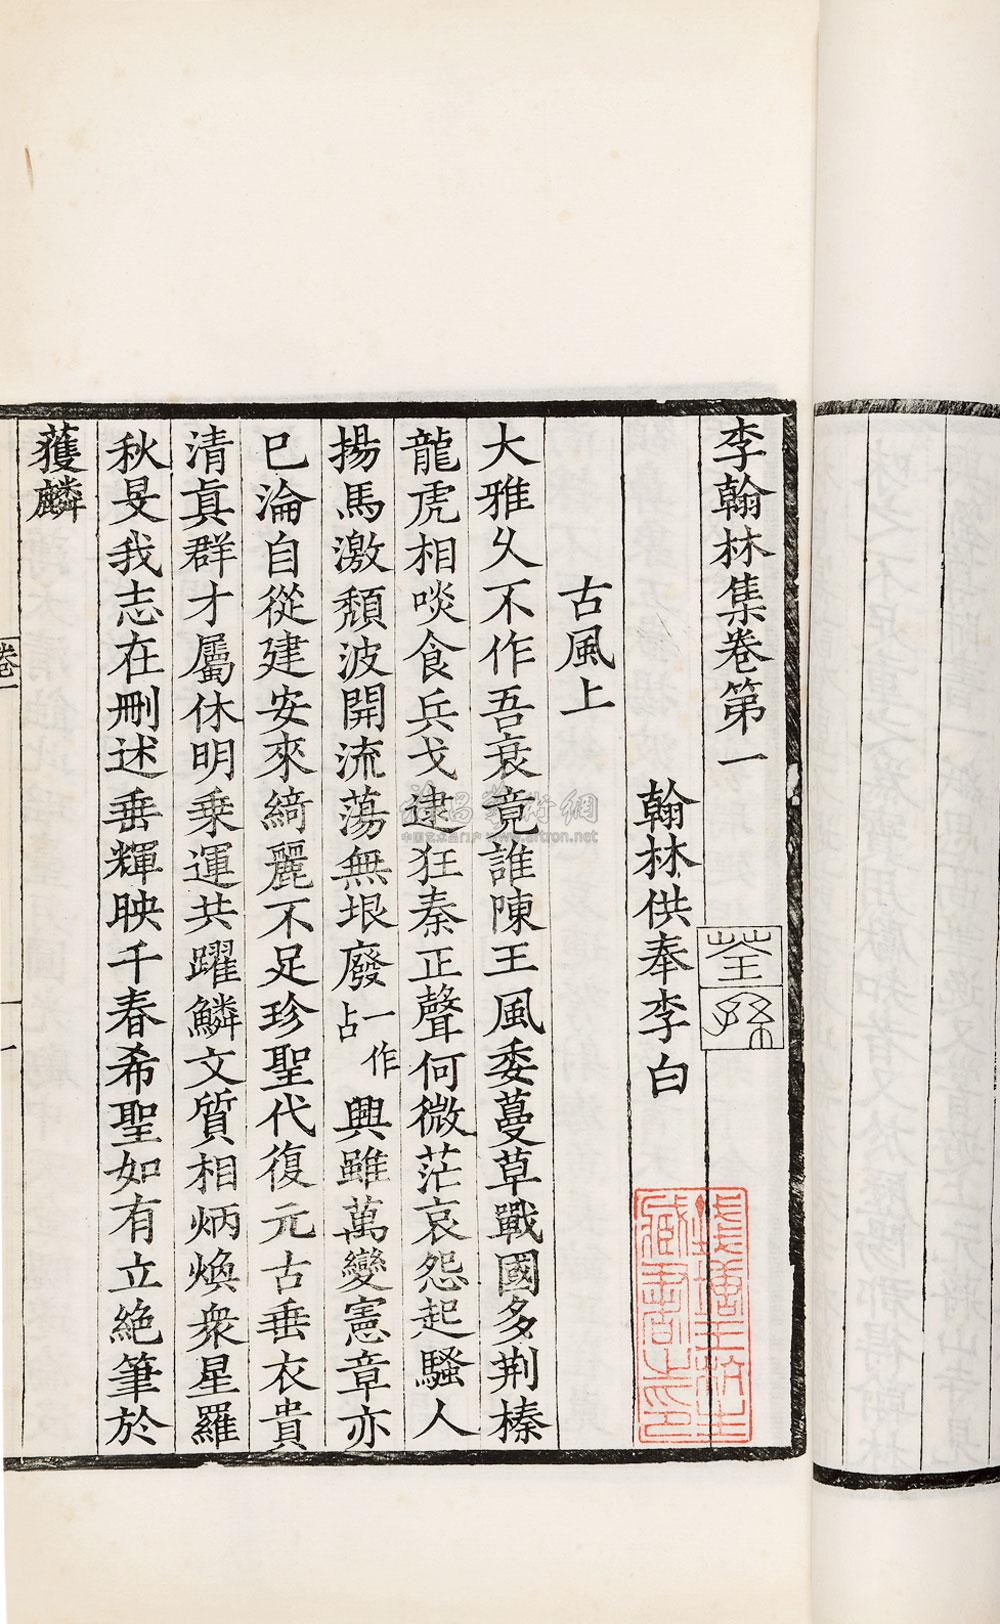 李翰林集卷第一
荃孫
翰林供奉李白
古風上
大雅久不作吾衰竟誰陳王風委蔓草戰國多荆榛
龍虎相啖食兵戈逮狂秦正聲何微茫哀怨起騷人
揚馬激頹波開流蕩無垠廢一作占興雖萬變憲章亦
已淪自從建安來綺麗不足珍聖代復元古垂衣貴
清眞群才屬休明乘運共躍鱗文質相炳煥衆星羅
秋旻我志在刪述垂輝映千春希聖如有立絶筆於
獲麟
卷一
一
雅昌藝術網
中国艺术品门户 www.artron.net